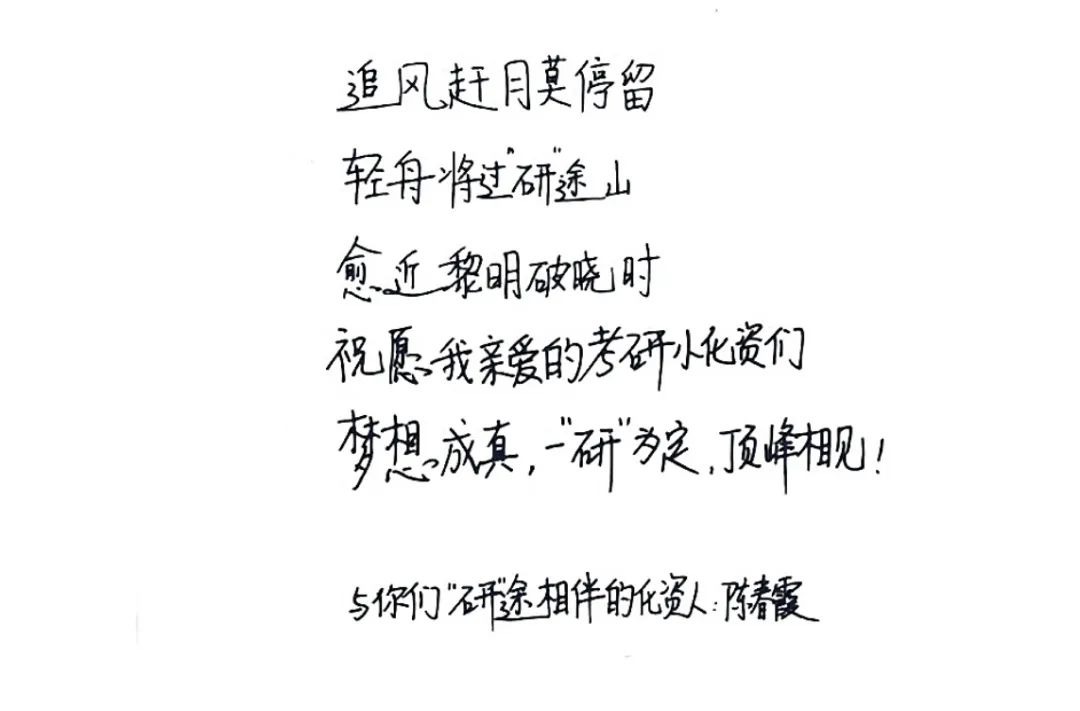 追风赶月莫停留
轻舟将过“研”途山
愈近黎明破晓时
祝愿我亲爱的考研小化资们
梦想成真，一“研”为定，顶峰相见！
与你们“研”途相伴的化资人：陈春霞